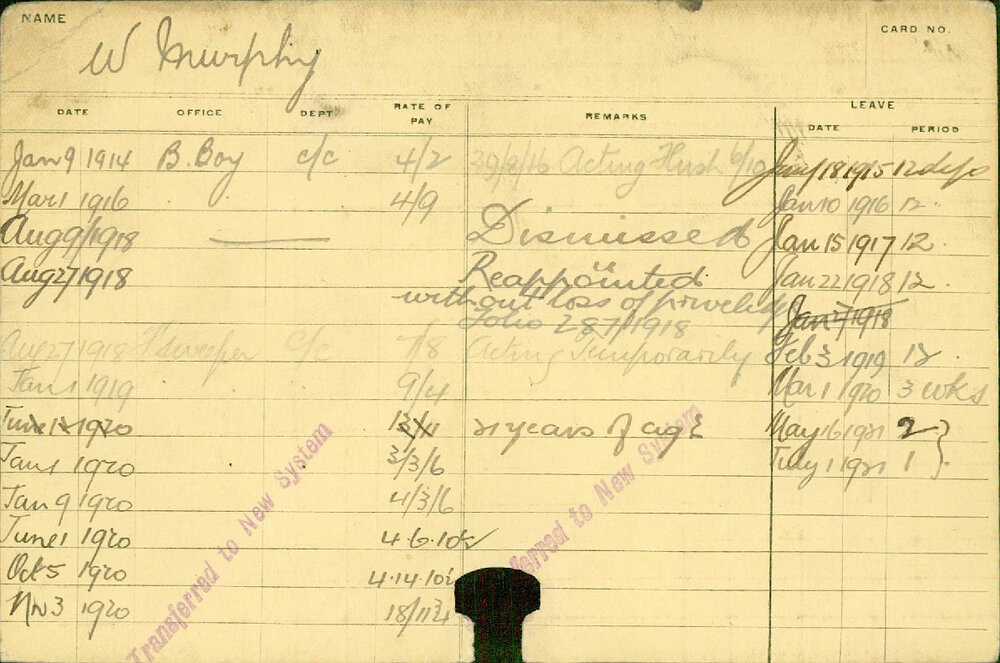 NAME
CARD NO.
W Murphy
DATE OFFICE DEPT. RATE OF PAY REMARKS LEAVE
DATE PERIOD
Jan 9 1914 B. Boy c/c 4/2 29/8/16 Acting 6/10 1915 12 days
Mar 1 1916 4/9 Jan 10 1916 12 "
Aug 9/1918 Dismissed Jan 15 1917 12 "
Aug 27 1918 Reappointed Jan 22 1918 12 "
without loss of
Folio 287/1918 Jan 27/1918
Aug 27 1918 Sweeper c/c 7/8 Acting Temporarily Feb 3 1919 12 "
Jan 1 1919 9/4 Mar 1 1920 3 wks
June 1920 21 years of age May 16 1921 2
Jan 1 1920 3/3/6 July 1 1921 1
Jan 9 1920 4/3/6
June 1 1920 4.6.10½
Oct 5 1920 4.14.10½
Nov 3 1920
Transferred to New System
Transferred to New System